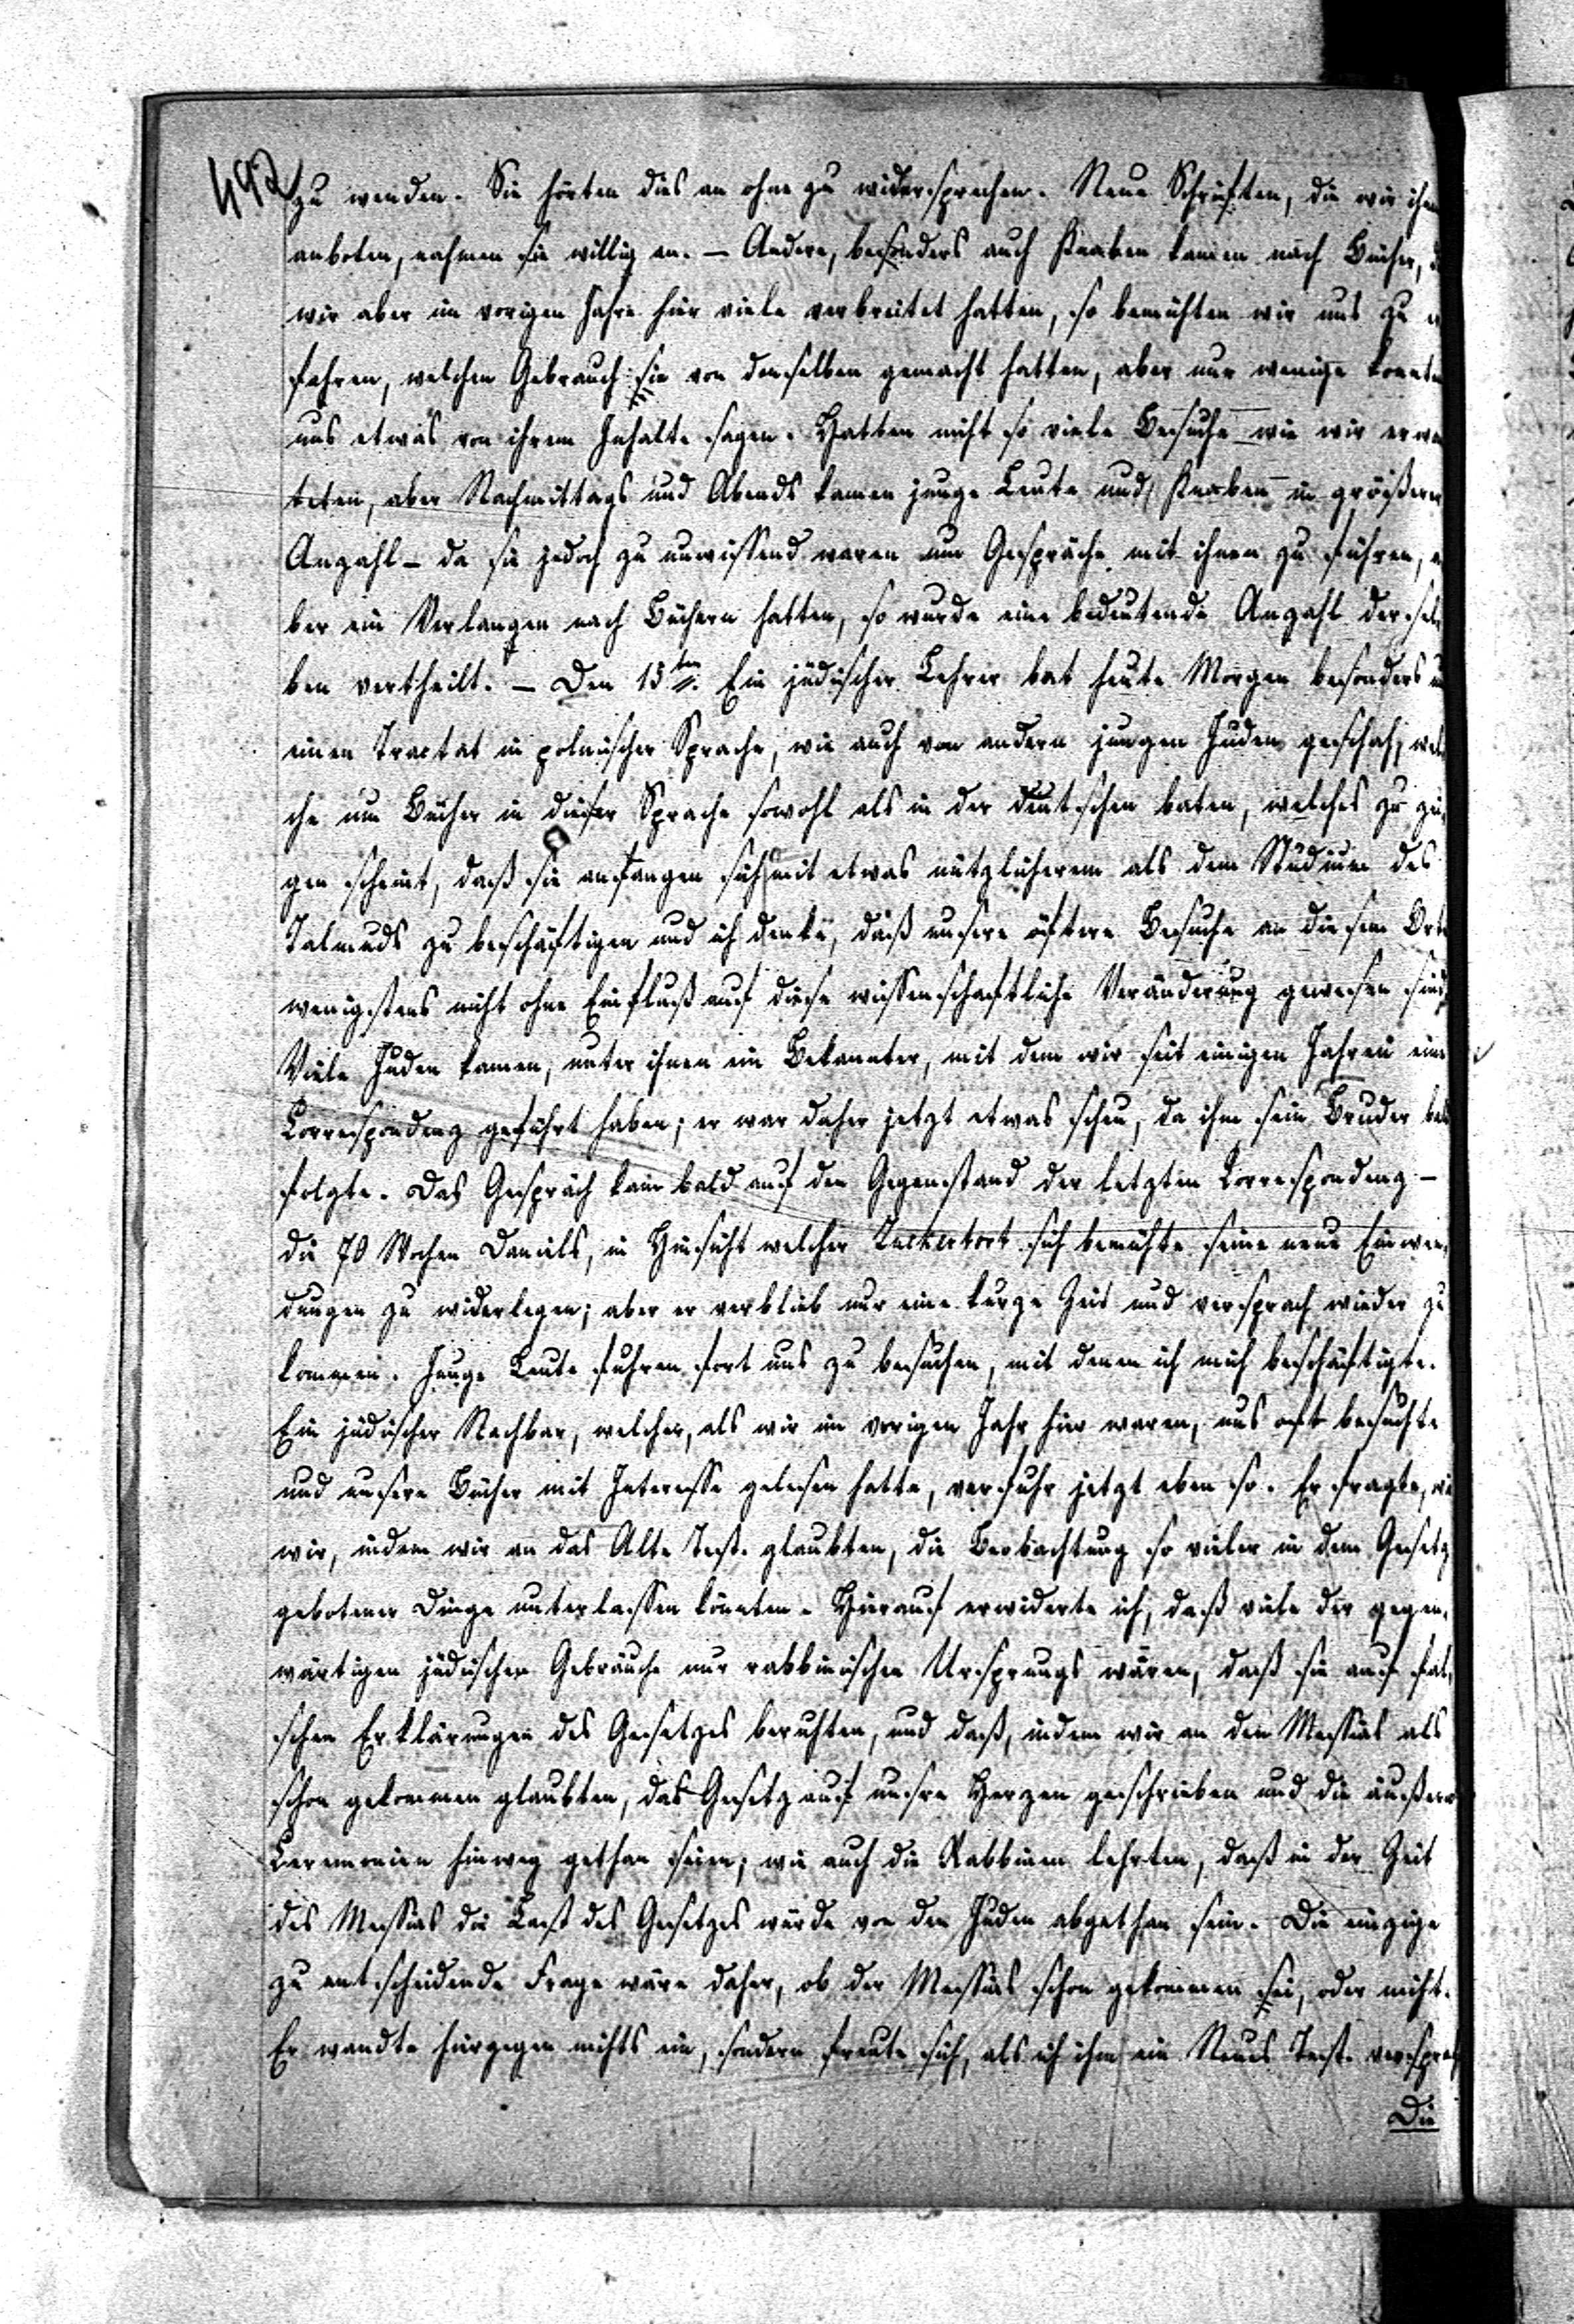 492
zu wenden. Sie hörten dies an ohne zu widersprechen. Neue Schriften, die wir ihnen
anboten, nahmen sie willig an. – Andere, besonders auch Knaben kamen nach Bücher,
wir aber im vorigen Jahre hier viele verbreitet hatten, so bemühten wir uns zu er
fahren, welchen Gebrauch sie von denselben gemacht hatten, aber nur wenige konnten
uns etwas von ihrem Inhalte sagen. Hatten nicht so viele Besuche wie wir erwar
teten, aber Nachmittags und Abends kamen junge Leute und Knaben in größerer
Anzahl – da sie jedoch zu unwissend waren um Gespräche mit ihnen zu führen, a
ber ein Verlangen nach Büchern hatten, so wurde eine bedeutende Anzahl dersel
ben vertheilt. – Den 15ten. Ein jüdischer Lehrer bat heute Morgen besonders um
einen Tractat in polnischer Sprache, wie auch von andern jungen Juden geschah, wel
che um Bücher in dieser Sprache sowohl als in der deutschen baten, welches zu zei,
gen scheint, daß sie anfangen sich mit etwas nützlicherem als dem Studium des
Talmuds zu beschäftigen und ich denke, daß unsere öftere Besuche an diesem Orte
wenigstens nicht ohne Einfluß auf diese wissenschaftliche Veränderung gewesen sind
Viele Juden kamen, unter ihnen ein Bekannter, mit dem wir seit einigen Jahren eine
Correspondenz geführt haben; er war daher jetzt etwas scheu, da ihm sein Bruder bald
folgte. Das Gespräch kam bald auf den Gegenstand der letzten Correspondenz –
die 70 Wochen Daniels, in Hinsicht welcher Zuckertort sich bemühte seine neue Einwen,
dungen zu widerlegen; aber er verblieb nur eine kurze Zeit und versprach wieder zu
kommen. Junge Leute fuhren fort uns zu besuchen, mit denen ich mich beschäftigte.
Ein jüdischer Nachbar, welcher, als wir im vorigen Jahr hier waren, uns oft besuchte
und unsere Bücher mit Interesse gelesen hatte, verfuhr jetzt eben so. Er fragte, wie
wir, indem wir an das Alte Test. glaubten, die Beobachtung so vieler in dem Gesetz
gebotener Dinge unterlassen könnten. Hierauf erwiderte ich, daß viele der gegen,
wärtigen jüdischen Gebräuche nur rabbinischen Ursprungs wären, daß sie auf fal,
schen Erklärungen des Gesetzes beruhten, und daß, indem wir an den Messias als
schon gekommen glaubten, das Gesetz auf unsre Herzen geschrieben und die äußern
Ceremonien hinweg gethan seien; wie auch die Rabbinen lehrten, daß in der Zeit
des Messias die Last des Gesetzes würde von den Juden abgethan sein. Die einzige
zu entscheidende Frage wäre daher, ob der Messias schon gekommen sei, oder nicht.
Er wandte hiergegen nichts ein, sondern freute sich, als ich ihm ein Neues Test. versprach
Die